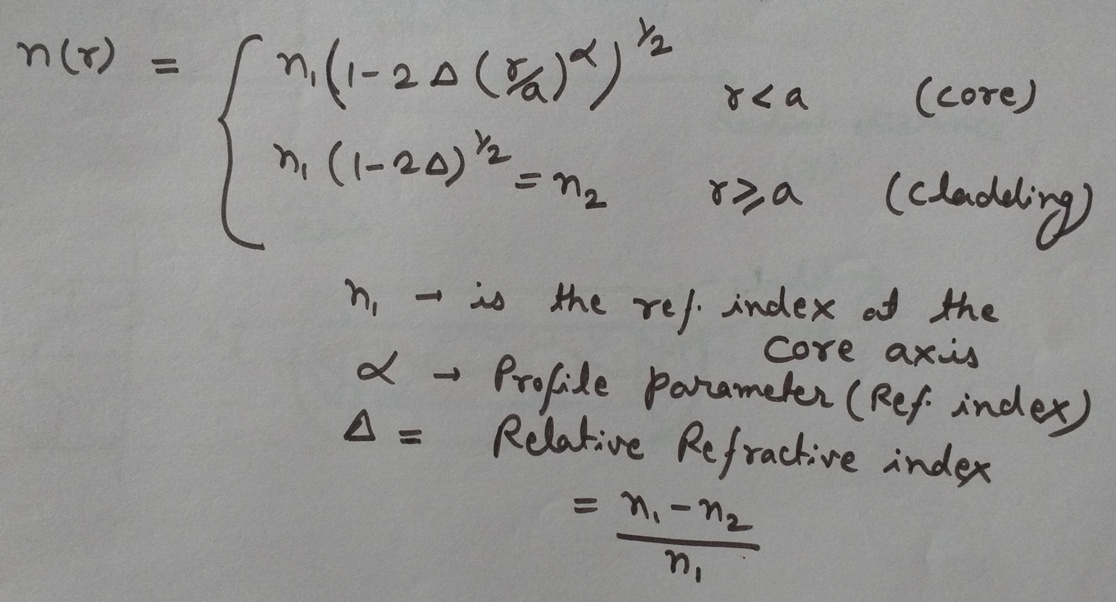 n(r) = { n₁(1-2Δ(r/a)^α)^1/2 r<a (core)
n₁(1-2Δ)^1/2 = n₂ r⩾a (cladding)
n₁ → is the ref. index at the
core axis
α → Profile parameter (Ref. index)
Δ = Relative Refractive index
= n₁-n₂
n₁